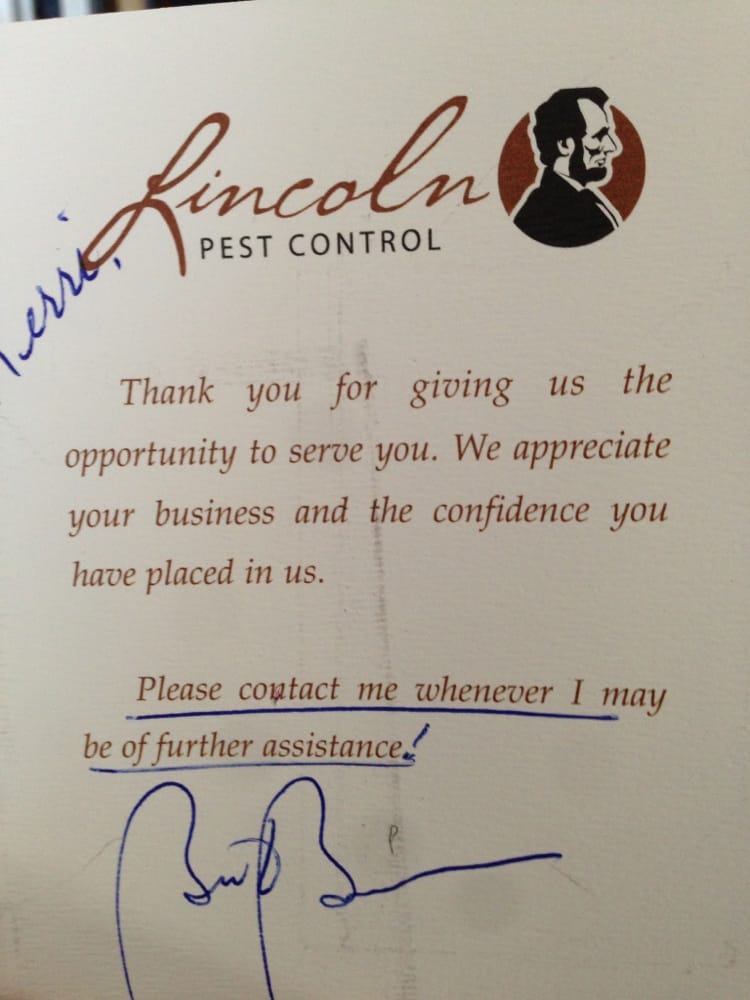 Lincoln
PEST CONTROL
Thank you for giving us the
opportunity to serve you. We appreciate
your business and the confidence you
have placed in us.
Please contact me whenever I may
be of further assistance.!